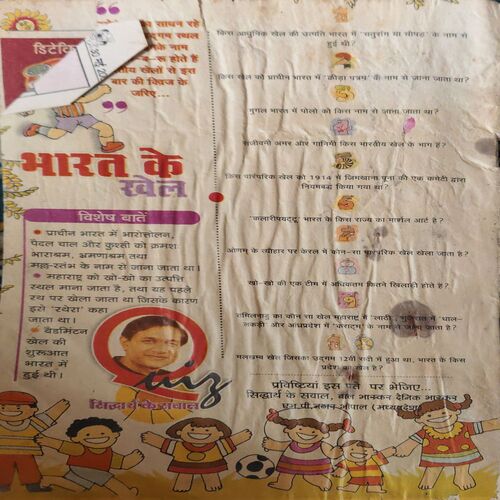 साधन रहे
स्थल
के नाम
रू होते हैं
खेलों से इस
बार की क्विज के
जरिए...
भारत के
खेल
विशेष बातें
प्राचीन भारत में भारोत्तोलन,
पैदल चाल और कुश्ती को क्रमशः
भाराश्रम, भ्रमणश्रम तथा
मल्ल-स्तंभ के नाम से जाना जाता था।
महाराष्ट्र को खो-खो का उत्पत्ति
स्थल माना जाता है, तथा यह पहले
रथ पर खेला जाता था जिसके कारण
इसे 'रथेरा' कहा
जाता था।
बैडमिंटन
खेल की
शुरुआत
भारत में
हुई थी।
Quiz
सिद्धार्थ के सवाल
किस आधुनिक खेल की उत्पत्ति भारत में 'चतुरांग या चौपड़' के नाम से
हुई थी?
किस खेल को प्राचीन भारत में 'क्रीड़ा पत्रम' के नाम से जाना जाता था?
मुगल भारत में पोलो को किस नाम से जाना जाता था?
संजीवनी अमर और गामिनी किस भारतीय खेल के भाग हैं?
किस पारंपरिक खेल को 1914 में जिमखाना पूना की एक कमेटी द्वारा
नियमबद्ध किया गया था?
'कलारीपयट्टू' भारत के किस राज्य का मार्शल आर्ट है?
ओणम् के त्यौहार पर केरल में कौन-सा पारंपरिक खेल खेला जाता है?
खो-खो की एक टीम में अधिकतम कितने खिलाड़ी होते हैं?
तमिलनाडु का कौन सा खेल महाराष्ट्र में 'लाठी', गुजरात में
और आंध्रप्रदेश में के नाम से जाना जाता है?
मलखम्भ खेल जिसका उद्गम 12वीं सदी में हुआ था, भारत के किस
प्रदेश का खेल है?
प्रविष्टियां इस पते पर भेजिए...
सिद्धार्थ के सवाल, बाल भास्कर दैनिक भास्कर
एम.पी.नगर भोपाल (मध्यप्रदेश)